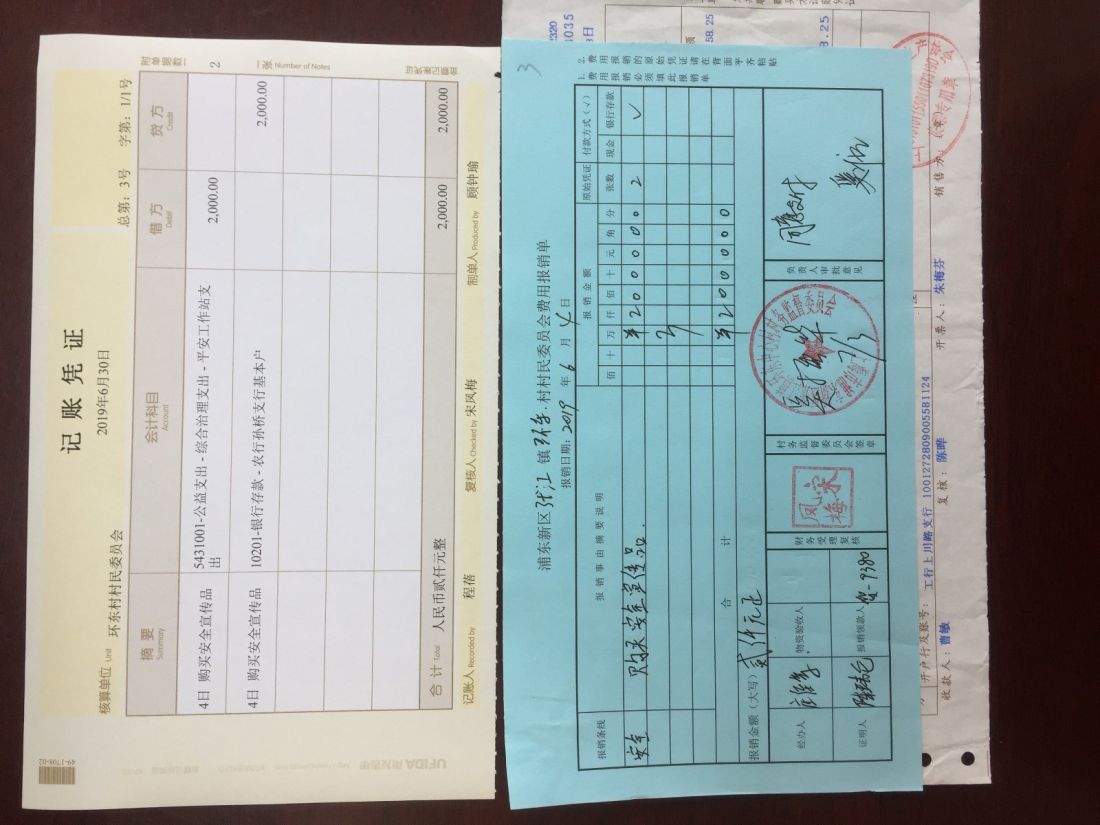 记账凭证
2019年6月30日
总第：3号 字第：1/1号
核算单位 Unit 环东村村民委员会
附单据数 2 张 Number of Notes
摘要 会计科目 借方 贷方
Summary Account Debit Credit
4日 购买安全宣传品 5431001-公益支出 - 综合治理支出 - 平安工作站支出 2,000.00
4日 购买安全宣传品 10201-银行存款 - 农行孙桥支行基本户 2,000.00
合计 Total 人民币贰仟元整 2,000.00 2,000.00
记账人 Recorded by 程蓓 复核人 Checked by 宋凤梅 制单人 Produced by 顾钟瑜
49-1708-02
UFIDA 用友表单
3
浦东新区张江镇环东村村民委员会费用报销单
报销日期：2019年6月4日
报销条线 报销事由摘要说明 报销金额 原始凭证 付款方式（√）
佰十万仟佰十元角分 张数 现金 银行存款
安全 购买安全宣传品. ¥200000 2 √
合计 ¥200000
报销金额（大写）贰仟元正
经办人 物资验收人 财务受理复核 村务监督委员会签章 负责人审批意见
同意支付
证明人 报销领款人
宋凤梅
1. 费用报销必须填此报销单
2. 费用报销的原始凭证请在背面平齐粘贴
2320
4035
58.25
8.25
开户行及账号： 工行上川路支行 1001272809005581124
收款人：曹敏 复核：陈晔 开票人：朱梅芬 销售方：（章）